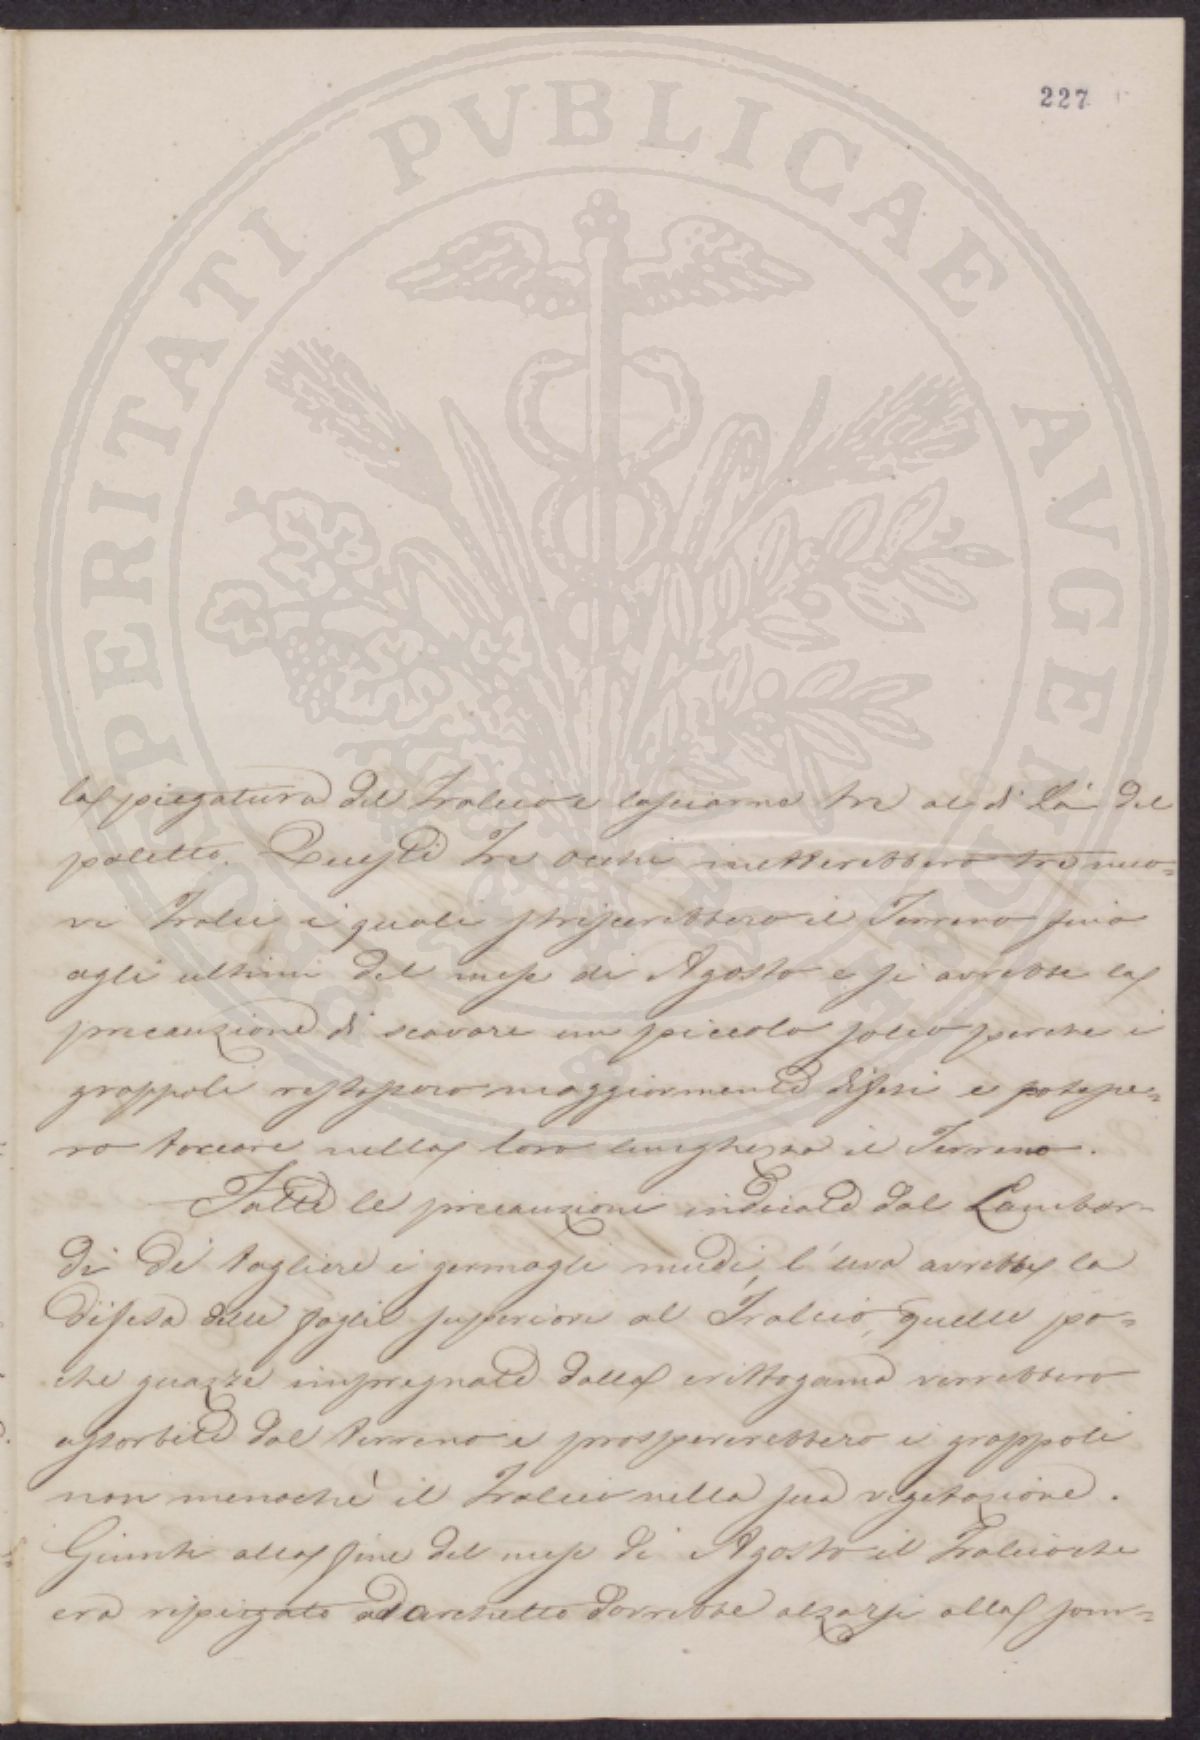 227
PROSPERITATI PVBLICAE AVGENDAE
la piegatura del Tralcio e lasciarne tre al di là del
paletto. Questi tre occhi metterebbero tre nuo=
vi Tralci i quali striscerebbero il Terreno fino
agli ultimi del mese di Agosto e si avrebbe la
precauzione di scavare un piccolo solco perche i
grappoli restassero maggiormente difesi e potesse=
ro toccare nella loro lunghezza il Terreno.
Fatte le precauzioni indicate dal Lambar=
di di togliere i germogli nudi, l'uva avrebbe la
difesa delle foglie superiori al Tralcio, quelle po=
che guazze impregnate dalla crittogama verrebbero
assorbite dal terreno e prospererebbero i grappoli
non menochè il Tralcio nella sua vegetazione.
Giunti alla fine del mese di Agosto il Tralcio che
era ripiegato ad archetto dovrebbe alzarsi alla som=